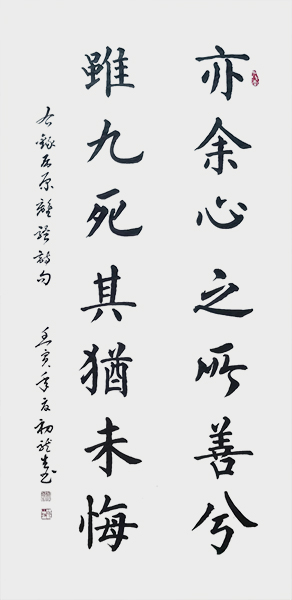 亦余心之所善兮
雖九死其猶未悔
右錄屈原離騷詩句
壬寅年夏